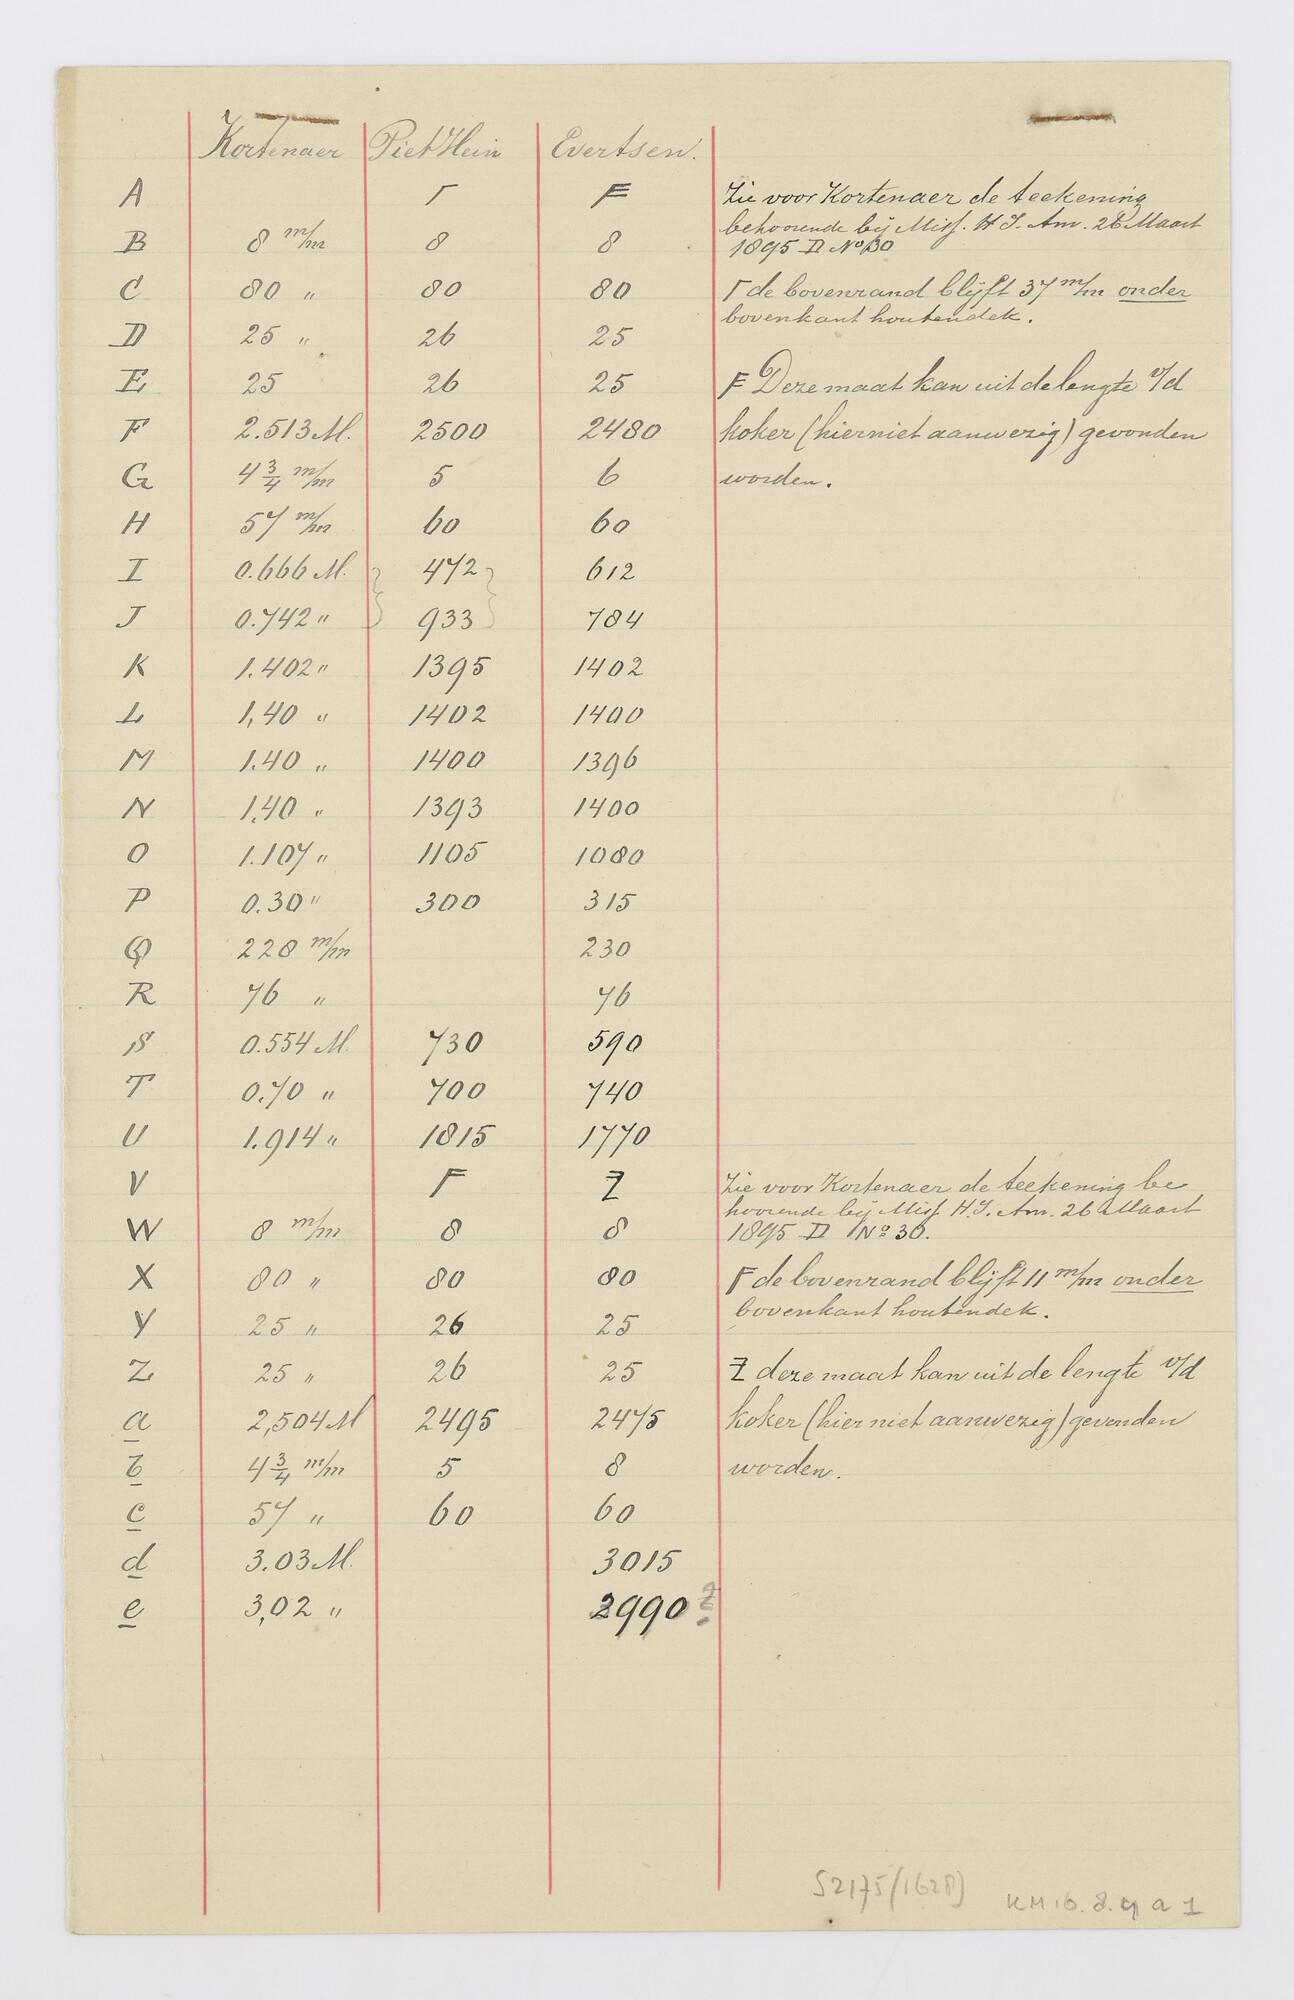 Kortenaer Piet Hein Evertsen.
A Γ F Zie voor Kortenaer de teekening
behoorende bij Miss. H I. Am. 26 Maart
B 8 m/m 8 8 1895 D No 30
C 80 " 80 80 Γ de bovenrand blijft 37 m/m onder
bovenkant houtendek.
D 25 " 26 25
E 25 26 25 F Deze maat kan uit de lengte v/d
F 2.513 M. 2500 2480 koker (hier niet aanwezig) gevonden
G 4 3/4 m/m 5 6 worden.
H 57 m/m 60 60
I 0.666 M. } 472 } 612
J 0.742 " } 933 } 784
K 1.402 " 1395 1402
L 1,40 " 1402 1400
M 1.40 " 1400 1396
N 1,40 " 1393 1400
O 1.107 " 1105 1080
P 0.30 " 300 315
Q 228 m/m 230
R 76 " 76
S 0.554 M. 730 590
T 0.70 " 700 740
U 1.914 " 1815 1770
V Γ Z Zie voor Kortenaer de teekening be
hoorende bij Miss. H.I. Am. 26 Maart
W 8 m/m 8 8 1895 D No 30.
X 80 " 80 80 F de bovenrand blijft 11 m/m onder
Y 25 " 26 25 bovenkant houtendek.
Z 25 " 26 25 Z deze maat kan uit de lengte v/d
a 2,504 M 2495 2475 koker (hier niet aanwezig) gevonden
b 4 3/4 m/m 5 8 worden.
c 57 " 60 60
d 3.03 M. 3015
e 3,02 " 2990 ?
S2175(1628)
KM 16.8.9 a 1